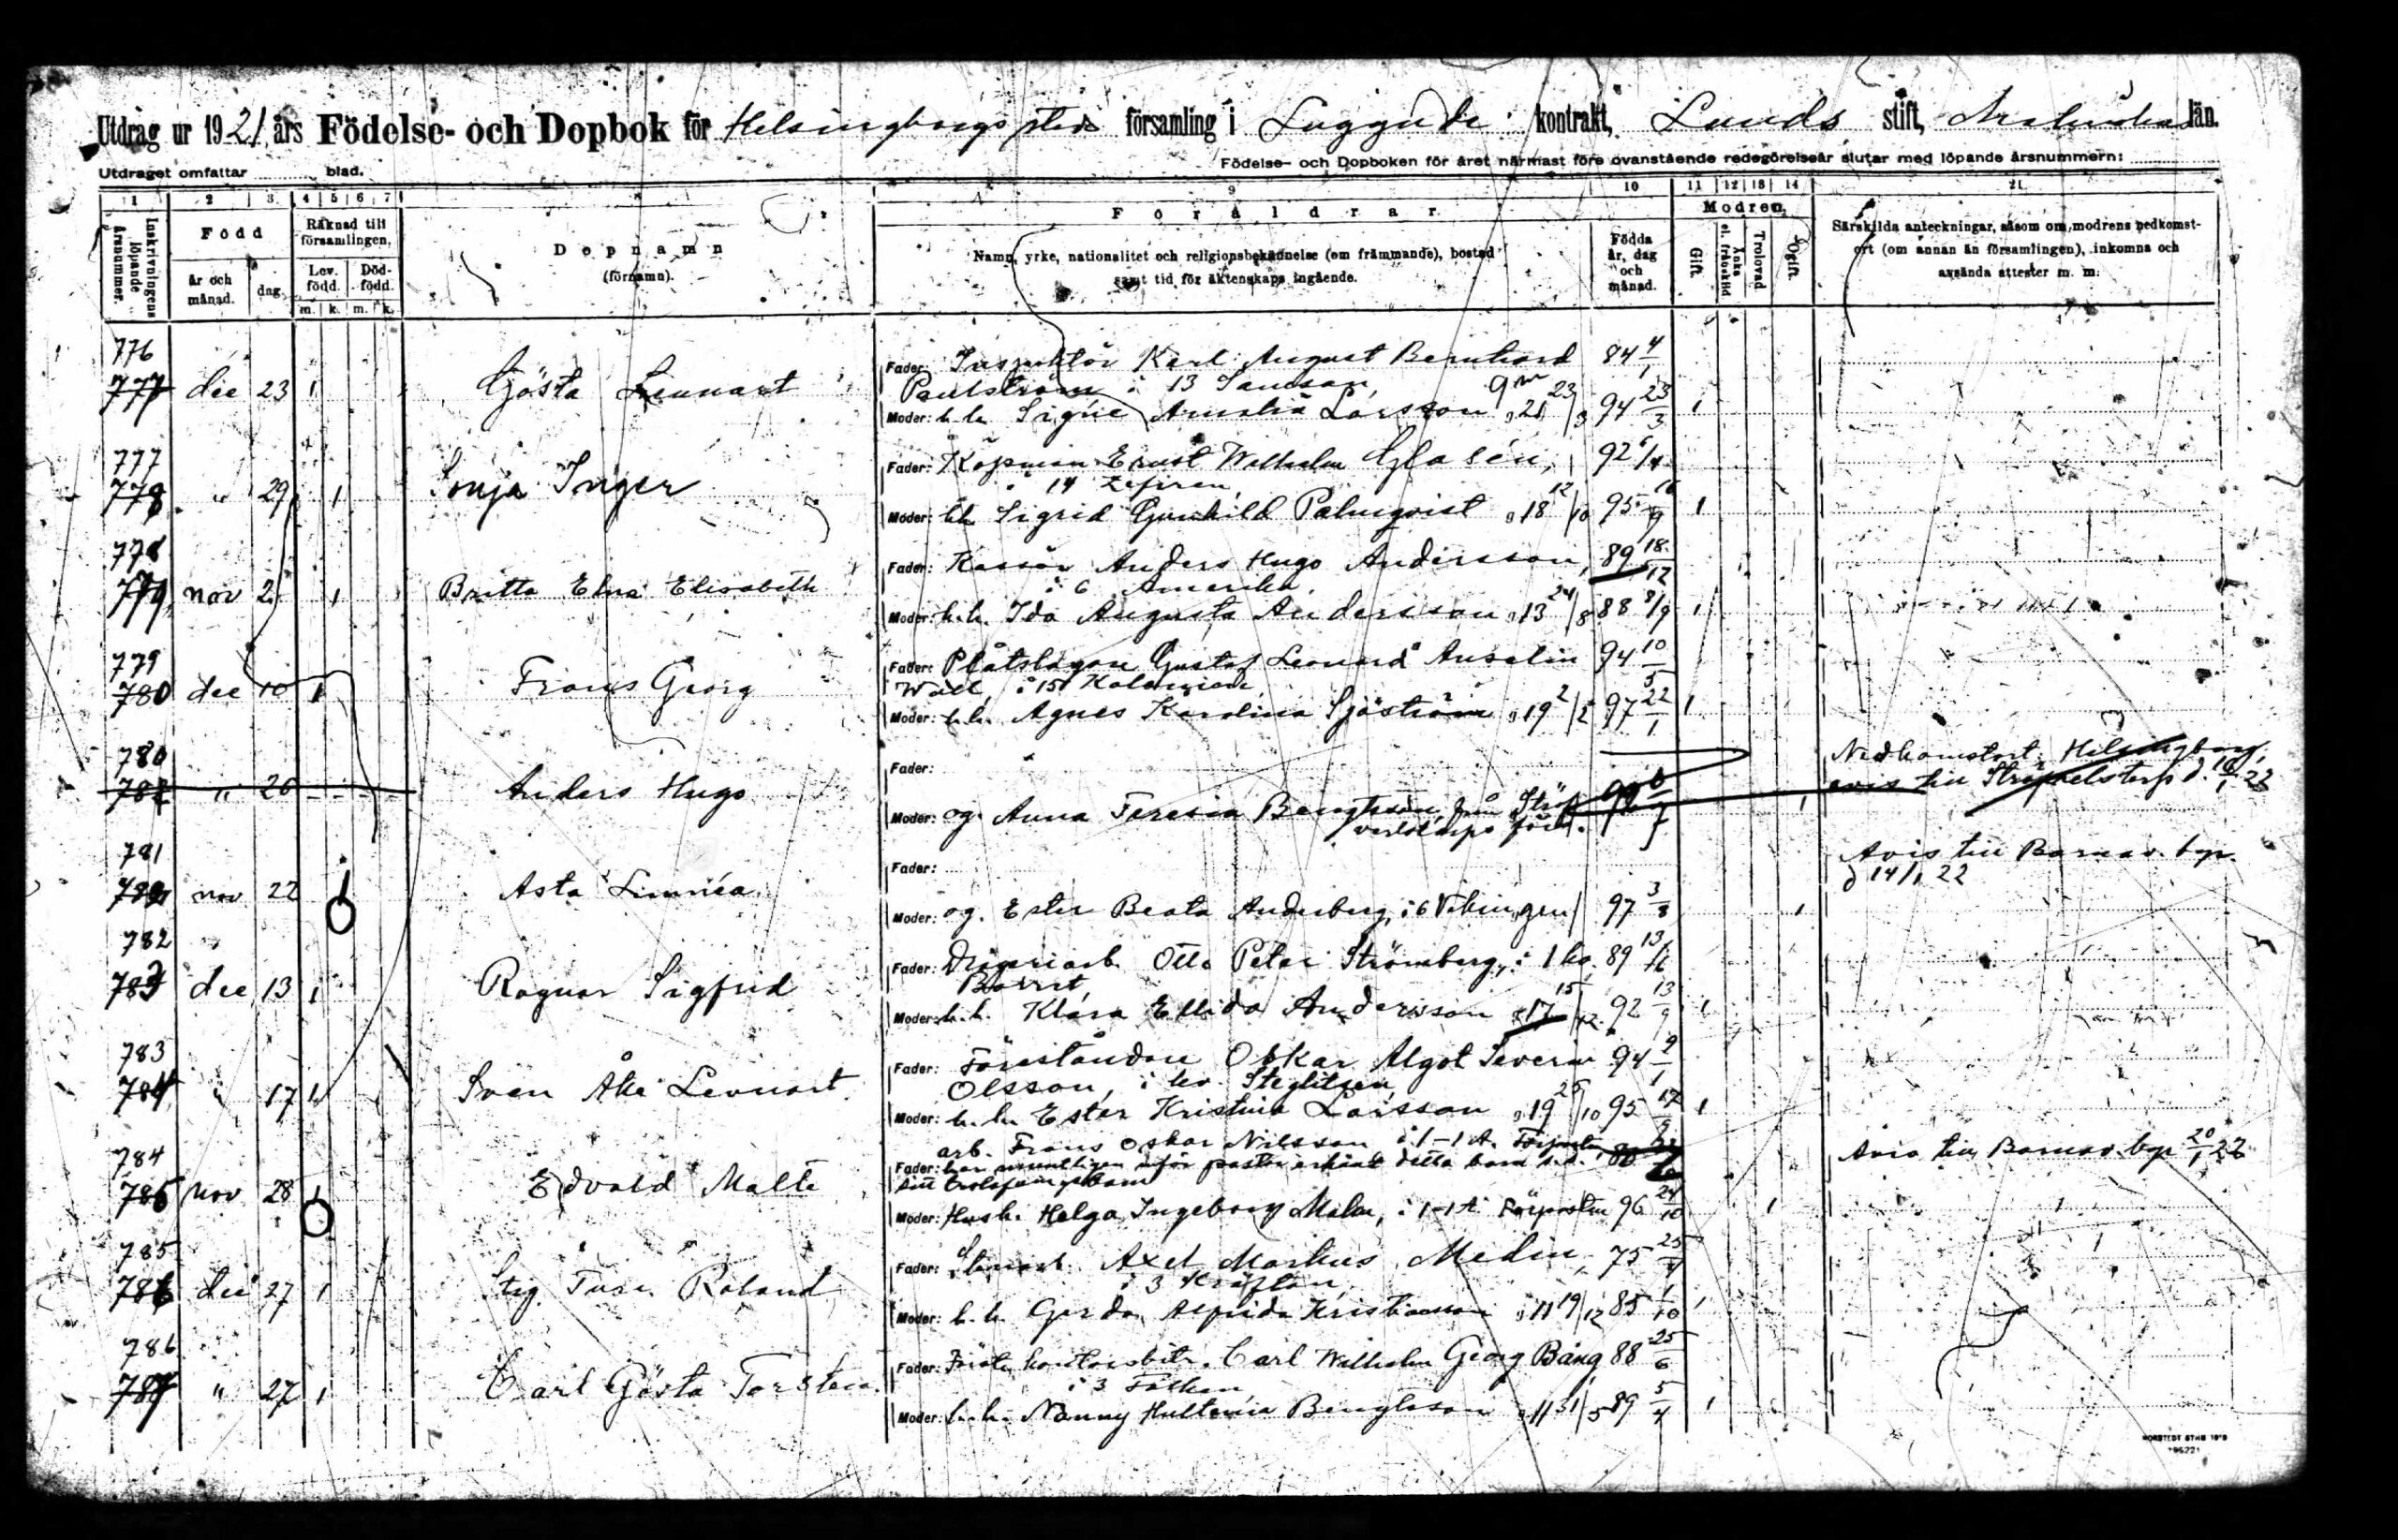 Utdrag ur 1921 års Födelse- och Dopbok för Helsingborgs stads församling i Luggude kontrakt, Lunds stift, län.
Födelse- och Dopboken för året närmast före ovanstående redegörelseår slutar med löpande årsnummern:
Utdraget omfattar blad.
1 2 3 4 5 6 7 9 10 11 12 13 14 21
Inskrivningens löpande årsnummer.
Född
år och månad.
dag.
Räknad till församlingen.
Lev. född.
Död- född.
m. k. m. k.
Dopnamn
(förnamn).
Föräldrar
Namn, yrke, nationalitet och religionsbekännelse (om främmande), bostad
samt tid för äktenskaps ingående.
Födda år, dag och månad.
Modren
Gift.
Änka el. frånskild
Trolovad
Ogift.
Särskilda anteckningar, såsom om modrens nedkomst-
ort (om annan än församlingen), inkomna och
avsända attester m. m.
776
777 dec 23 1 Gösta Lennart
Fader: Inspektör Karl August Bernhard 84 4/1
Paulström i 13 Samson,
Moder: h.h. Signe Amalia Larsson g 21 23/3 94 23/3 1
777
778 " 29 1 Sonja Inger
Fader: Köpman Ernst Wilhelm Glasén, 92 6/4
i 14 Zefiren
Moder: h.h. Sigrid Gunhild Palmqvist g 18 12/10 95 16/9 1
778
779 nov 2 1 Britta Elna Elisabeth
Fader: Kassör Anders Hugo Andersson, 89 18/12
i 6 Amerika
Moder: h.h. Ida Augusta Andersson g 13 24/8 88 8/9 1
779
780 dec 10 1 Frans Georg
Fader: Plåtslagare Gustaf Leonard Anselm 94 10/5
Wall, i 15
Moder: h.h. Agnes Karolina Sjöström g 19 2/2 97 22/1 1
780
" 26 Anders Hugo
Fader:
Moder: og. Anna Teresia Bengtsson, från
Nedkomstort: Helsingborg,
avis till d. 22
781
782 nov 22 1 Asta Linnéa
Fader:
Moder: og. Ester Beata Anderberg, i 6 Vikingen 97 3/8 1
Avis till Barnav. byr.
d 14/1 22
782
783 dec 13 1 Ragnar Sigfrid
Fader: Otto Peter Strömberg, i 1 89 13/6
Moder: h.h. Klara Ellida Andersson g 17 15/12 92 13/9 1
783
784 " 17 1 Sven Åke Lennart
Fader: Föreståndare Oskar Algot Severin 94 2/1
Olsson, i kv. Steglitsen,
Moder: h.h. Ester Kristina Larsson g 19 25/10 95 17/9 1
784
785 nov 28 1 Edvald Malte
arb. Frans Oskar Nilsson i 1-1 A.
Fader: har muntligen inför pastor erkänt detta barn s.s.
sitt trolovningsbarn
Moder: Hush. Helga Ingeborg Malm, i 1-1 A 96 24/10 1
Avis till Barnav. byr 20/1 22
785
786 dec 27 1 Stig Ture Roland
Fader: Axel Markus Medin, 75 25/4
i 3 Kräftan,
Moder: h.h. Gerda Alfrida Kristiansson g 11 19/12 85 1/10 1
786
787 " 27 1 Carl Gösta Torsten
Fader: Förste kontorsbitr. Carl Wilhelm Georg Bång 88 25/6
i 3 Falken,
Moder: h.h. Nanny Hultenia Bengtsson g 11 31/5 89 5/4 1
NORSTEDT STHM 1919